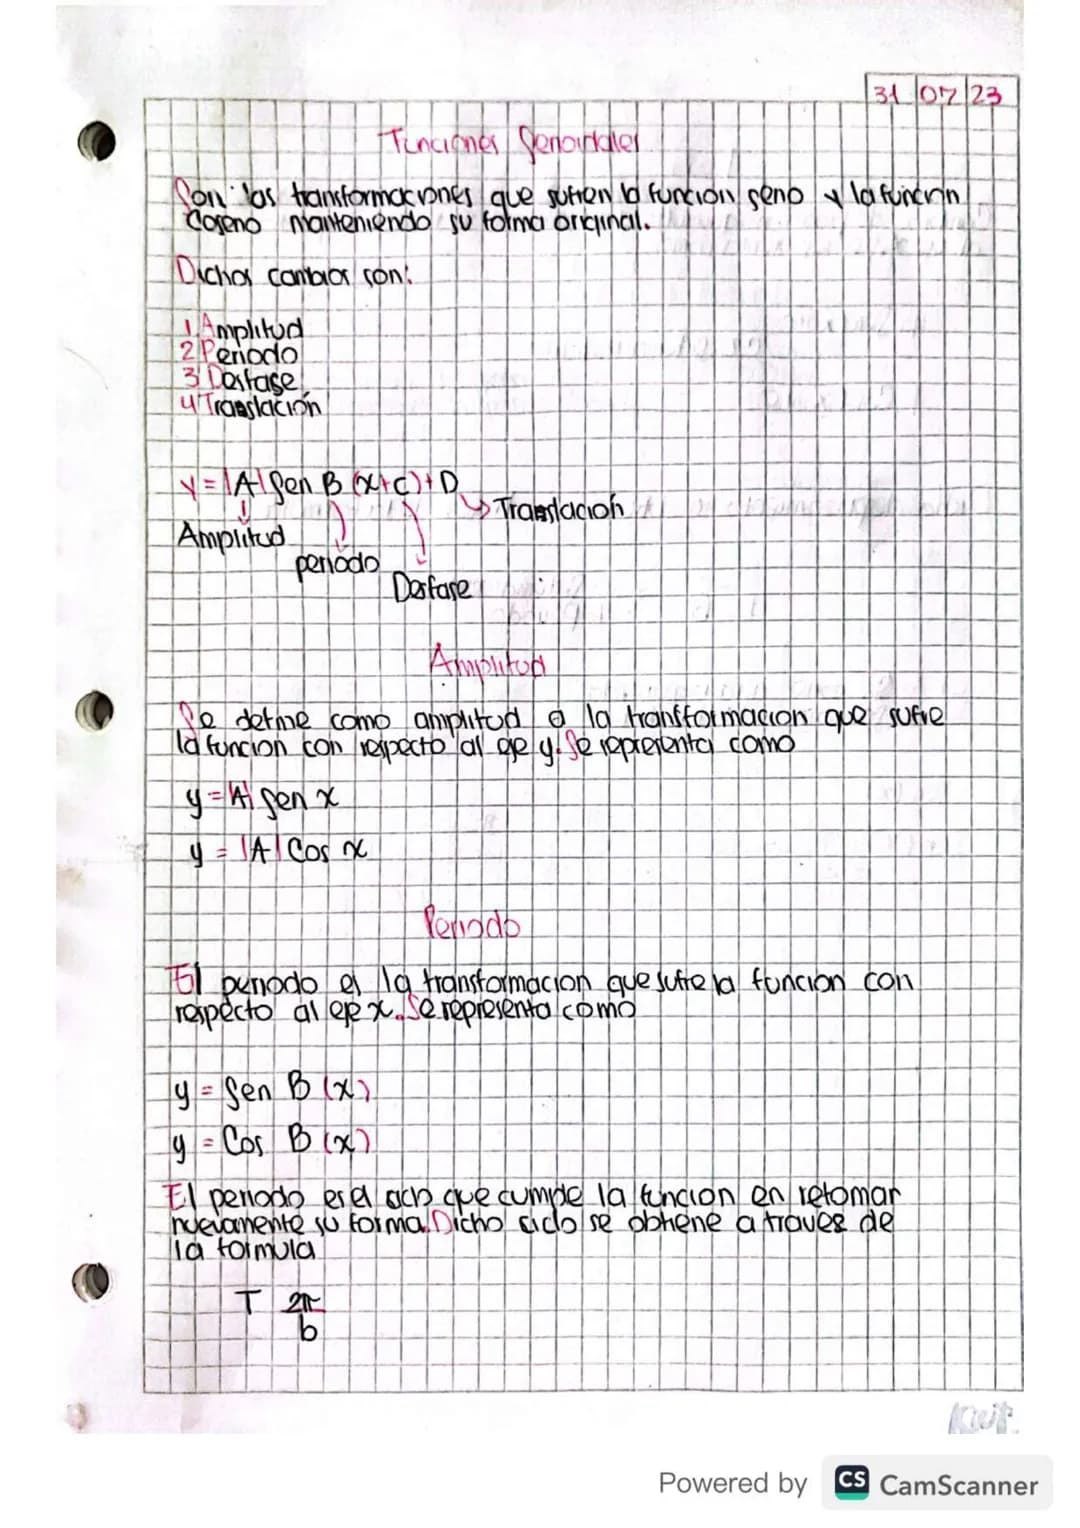 31 07 23
Funciones Senoidales
Son las transformaciones que sufren la funcion seno y la función
Coseno manteniendo su forma original.
Dichos cambios son:
1. Amplitud
2 Periodo
3 Desfase
4 Translación
y = |A| Sen B (x+c) + D
Translación
Amplitud
periodo
Desfase
Amplitud
Se define como amplitud a la transformacion que sufre
la funcion con respecto al eje y. Se representa como
y = |A| sen x
y = |A| Cos x
Periodo
El periodo es la transformacion que sufre la funcion con
respecto al eje x. Se representa como
y = Sen B (x)
y = Cos B (x)
El periodo es el que cumple la funcion en retomar
nuevamente su forma. Dicho ciclo se obtiene a traves de
la formula
T 2π
b
Powered by CS CamScanner